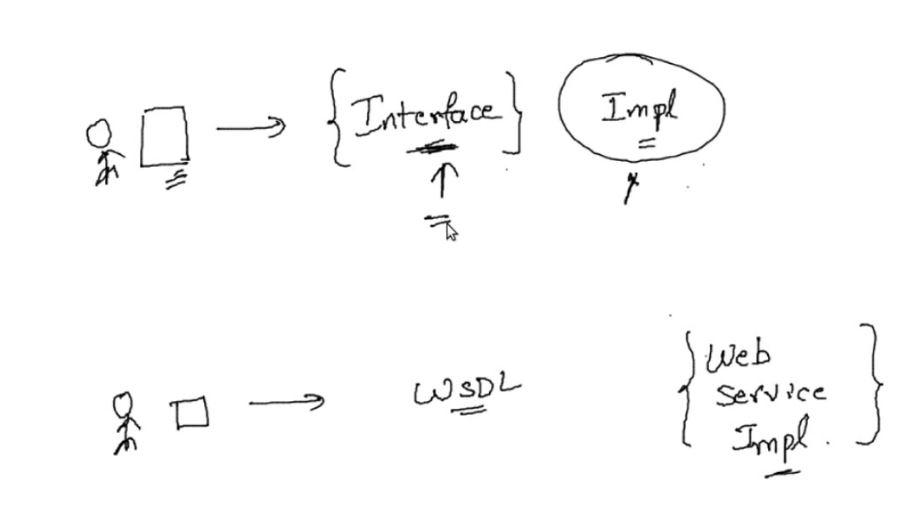 Interface
Impl
WSDL
Web
Service
Impl.